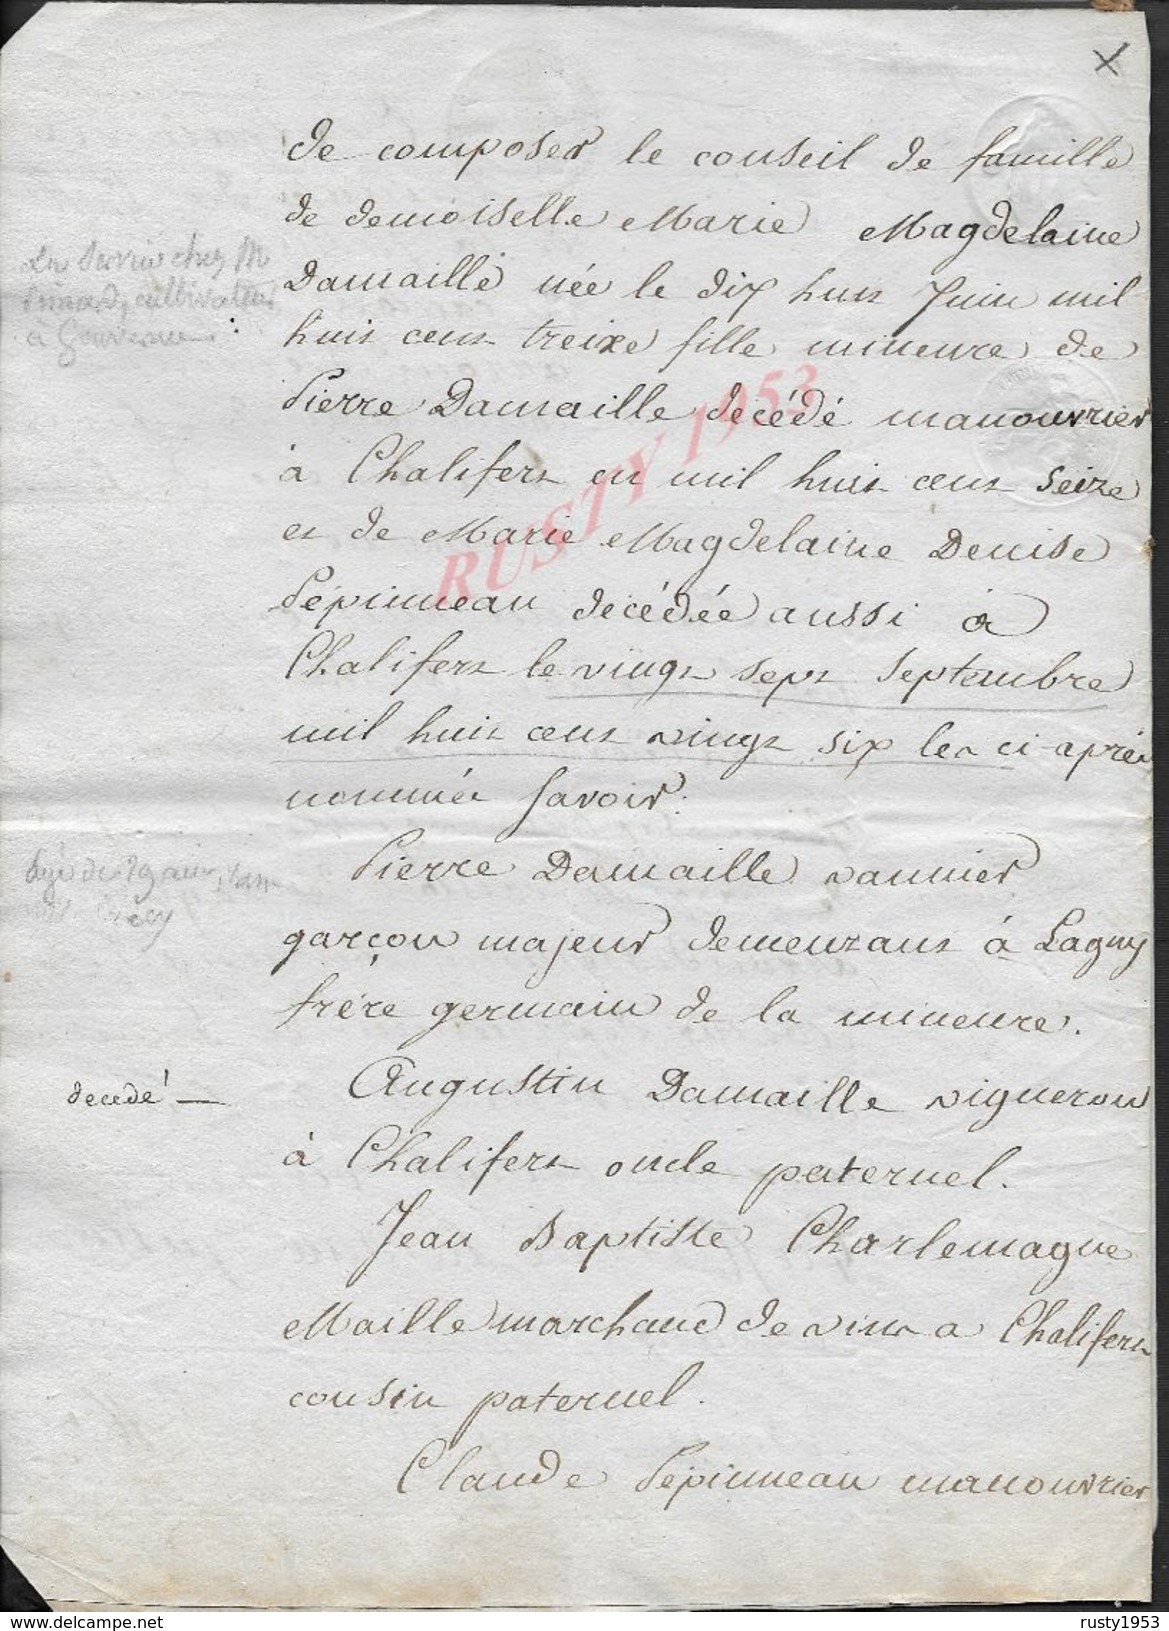 de composer le conseil de famille
de demoiselle Marie Magdelaine
Damaille née le dix huit Juin mil
huit cent treize fille mineure de
Pierre Damaille decédé manouvrier
à Chalifert en mil huit cent seize
et de Marie Magdelaine Denise
Pépinneau decédée aussi à
Chalifert le vingt sept septembre
mil huit cent vingt six les ci après
nommés Savoir:
Pierre Damaille vannier
garçon majeur demeurant à Lagny
frère germain de la mineure.
decedé —
Augustin Damaille vigneron
à Chalifert oncle paternel.
Jean Baptiste Charlemagne
Maille marchand de vins a Chalifert
cousin paternel.
Claude Pépinneau manouvrier
en service chez M
cultivateur
a
agé de 29 ans
RUSTY 1953
http://www.delcampe.net
rusty1953